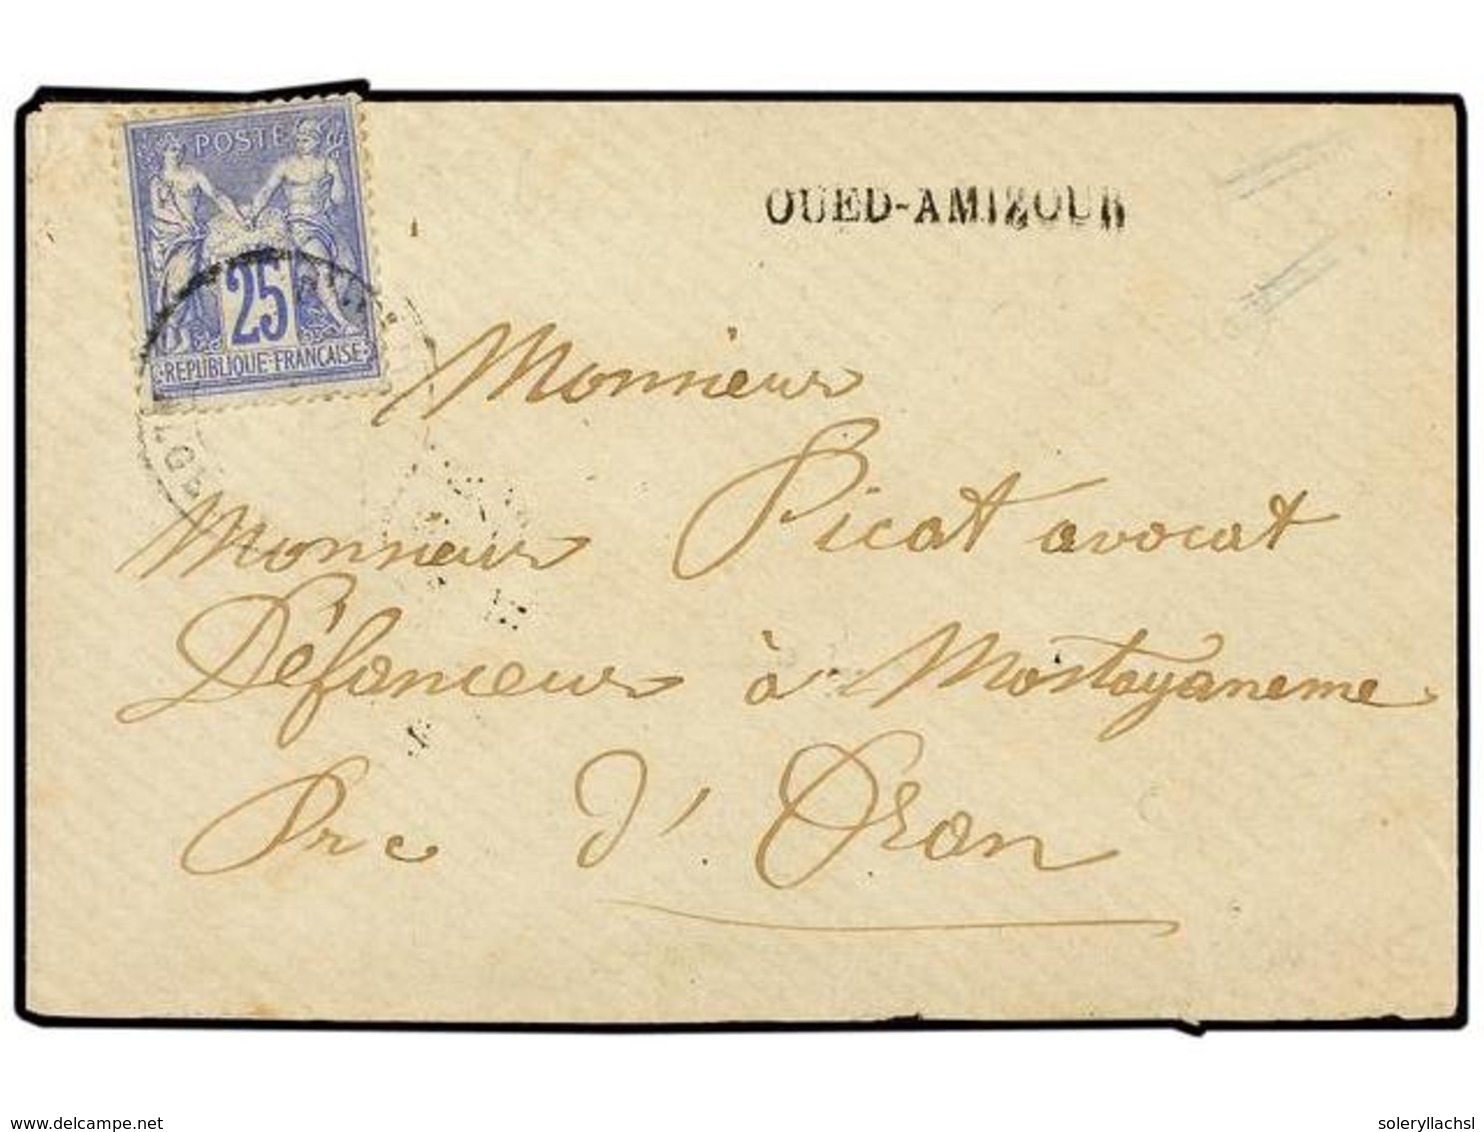 POSTE
25
REPUBLIQUE FRANCAISE
OUED-AMIZOUR
Monsieur
Monsieur Picat avocat
Défenceur à Mostayaneme
Prc d'Oran
www.delcampe.net
soleryllachsl